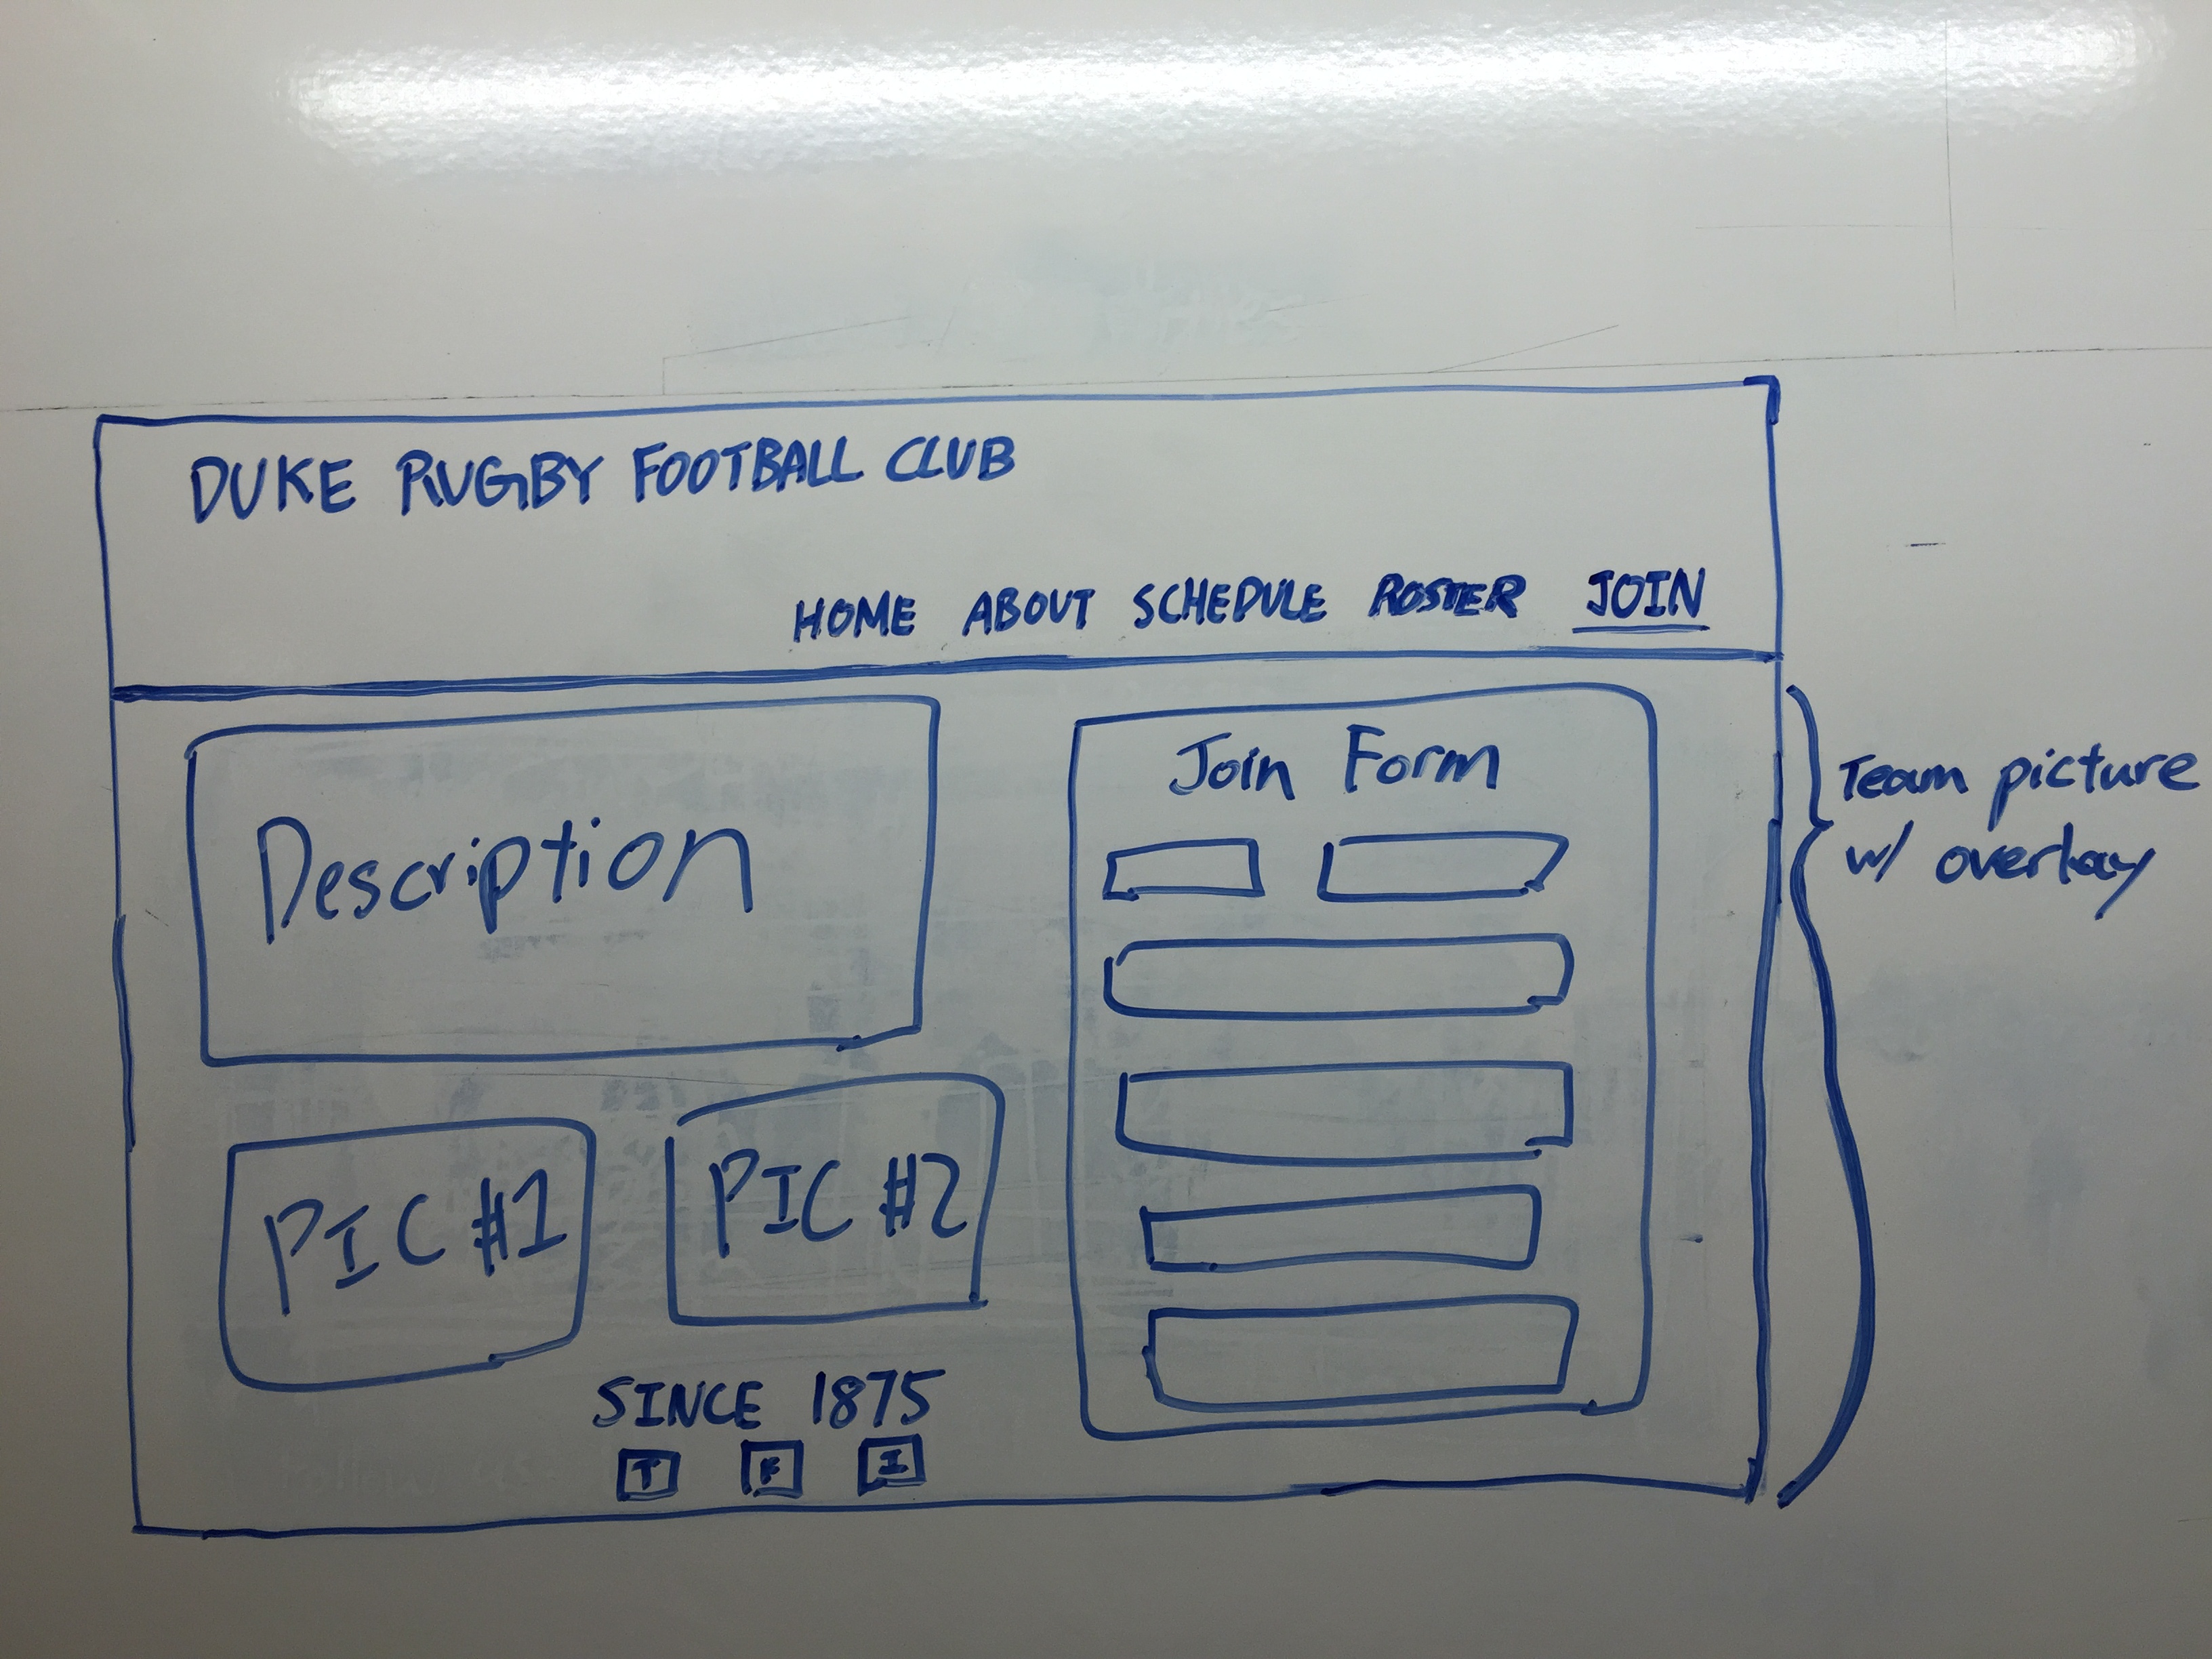 DUKE RUGBY FOOTBALL CLUB
HOME ABOUT SCHEDULE ROSTER JOIN
Description
PIC #1 PIC #2
SINCE 1875
T F I
Join Form
Team picture
w/ overlay